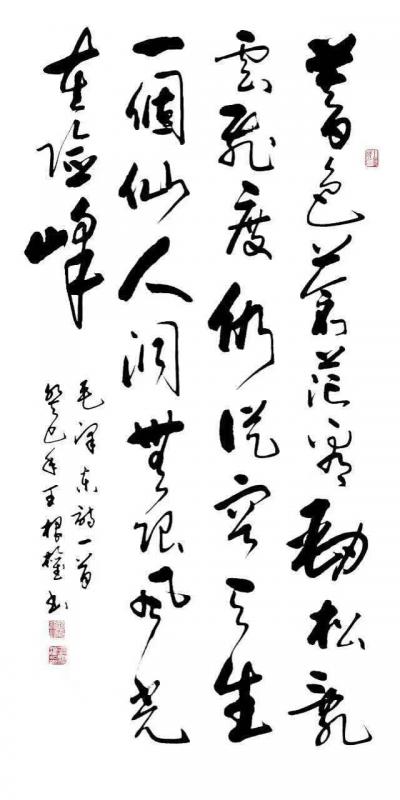 暮色蒼茫看勁松亂
雲飛度仍從容天生
一個仙人洞無限風光
在險峰
毛澤東詩一首
癸巳年王根權書